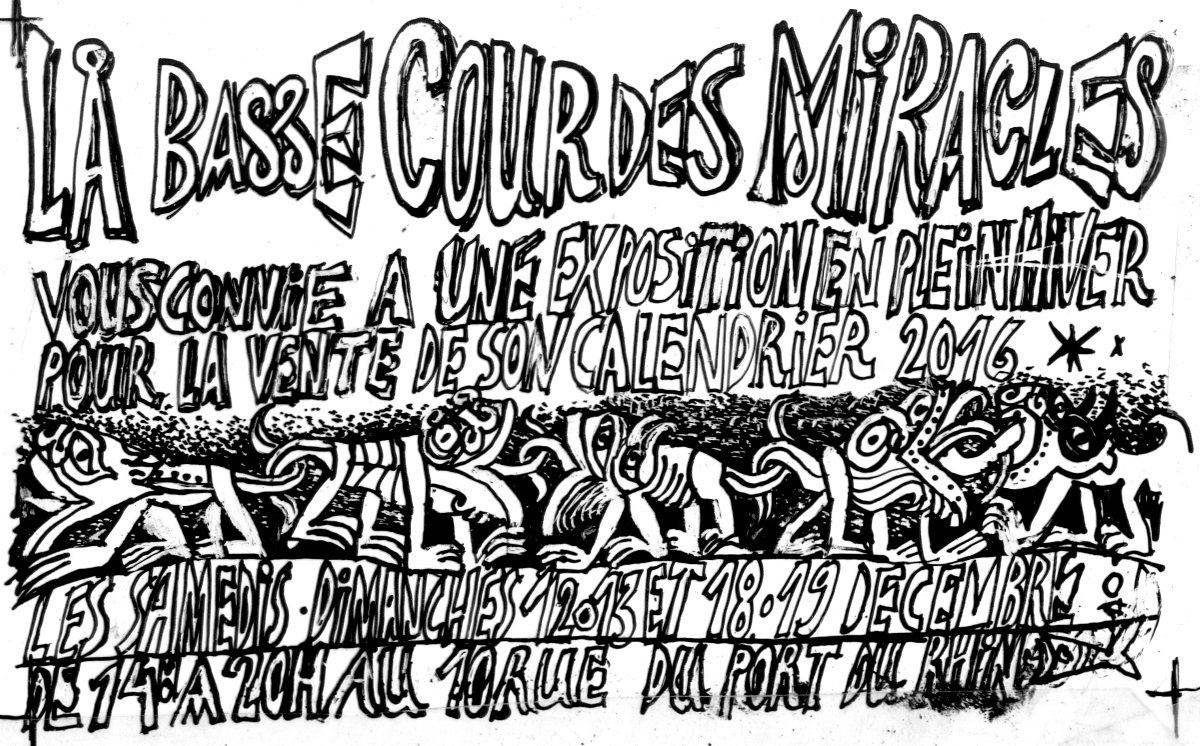 LA BASSE COUR DES MIRACLES
VOUS CONVIE A UNE EXPOSITION EN PLEIN HIVER
POUR LA VENTE DE SON CALENDRIER 2016
LES SAMEDIS · DIMANCHES 12·13 ET 18·19 DECEMBRE
DE 14: A 20H AU 10 RUE DU PORT DU RHIN